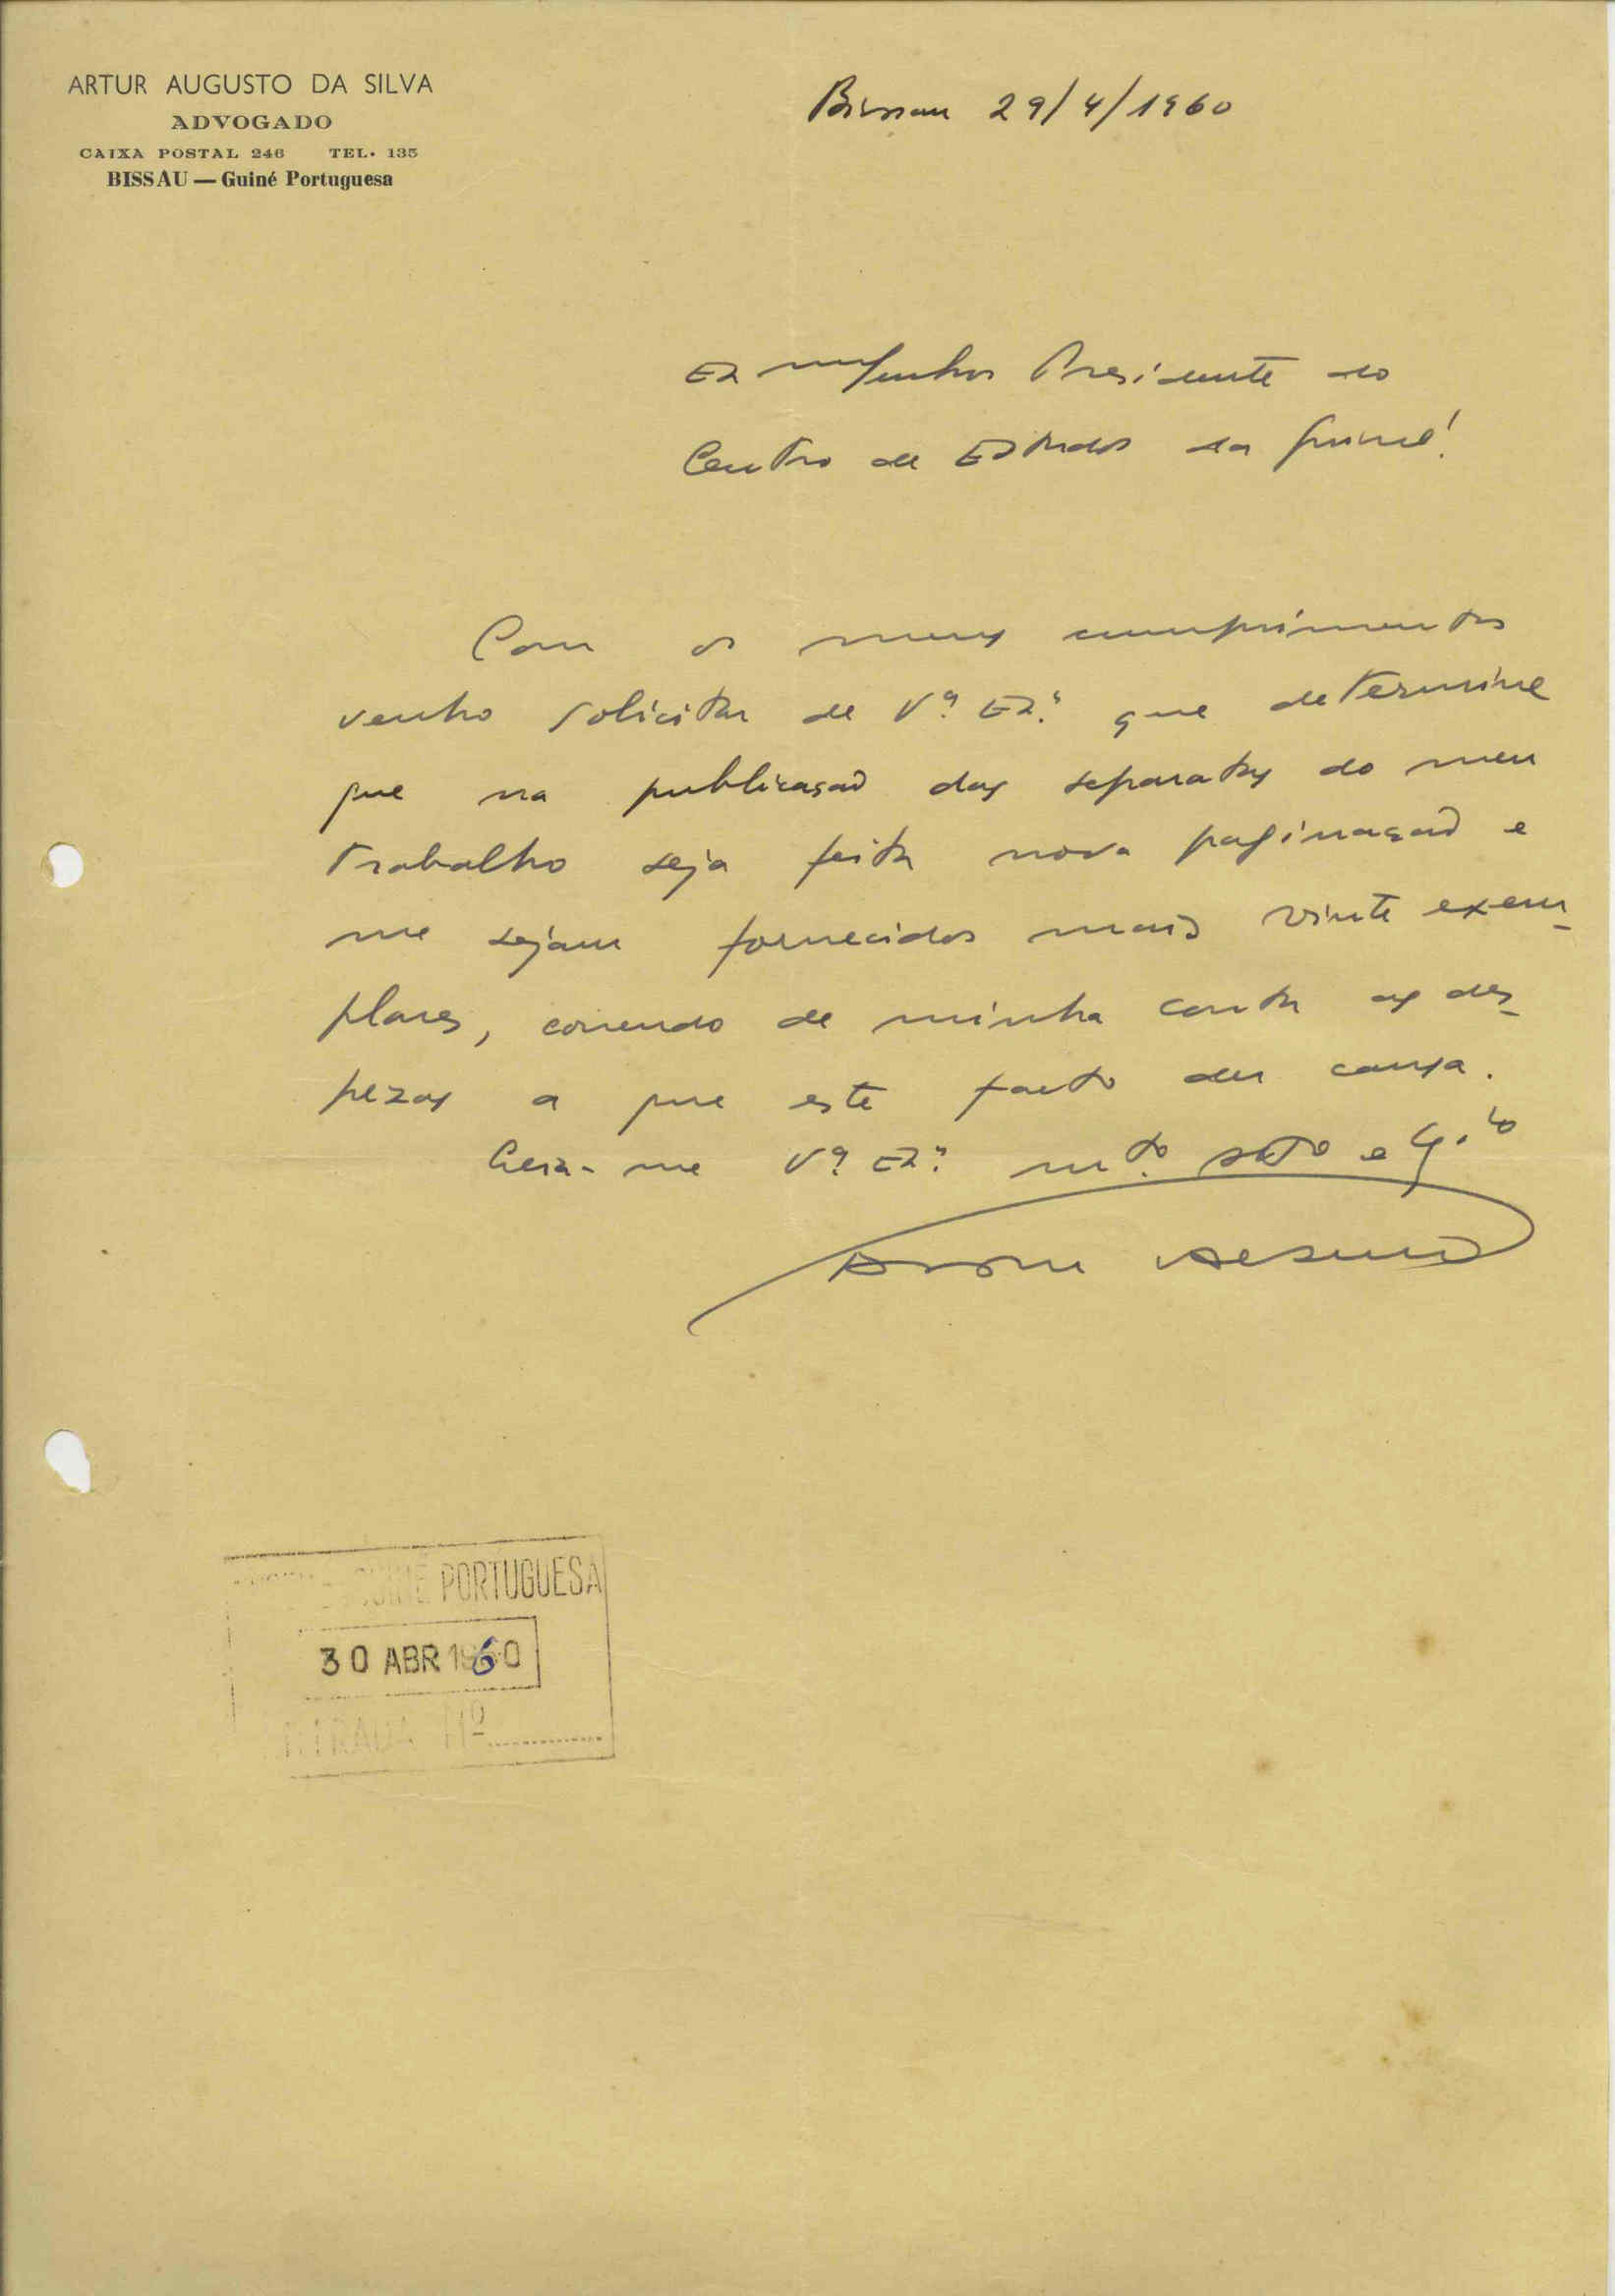 ARTUR AUGUSTO DA SILVA
ADVOGADO
CAIXA POSTAL 246 TEL. 135
BISSAU — Guiné Portuguesa
Bissau 29/4/1960
Exmo Senhor Presidente do
Centro de Estudos da Guiné
Com os meus cumprimentos
venho solicitar de Vª. Exª. que determine
que na publicação das separatas do meu
trabalho seja feita nova paginação e
me sejam fornecidos mais vinte exem-
plares, correndo de minha conta as des-
pezas a que este facto der causa.
Creia-me Vª. Exª. mtº. attº e
GUINÉ PORTUGUESA
30 ABR 1960
ENTRADA Nº